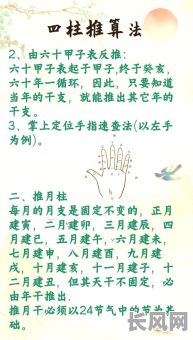 四柱推算法
2、由六十甲子表反推：
六十甲子表起于甲子,终于癸亥，
六十年一循环，因此，只要知道
当年的干支，就能推出其它年的
干支。
3、掌上定位手指速查法(以左手
为例)。
二、推月柱
每月的月支是固定不变的，正月
建寅，二月建卯，三月建辰，四
月建巳，五月建午，六月建未，
七月建申，八月建酉，九月建
戌，十月建亥，十一月建子，十
二月建丑，但其天干不固定，必
由年干推出.
推月干必须以24节气中的节为基
础。
长风网